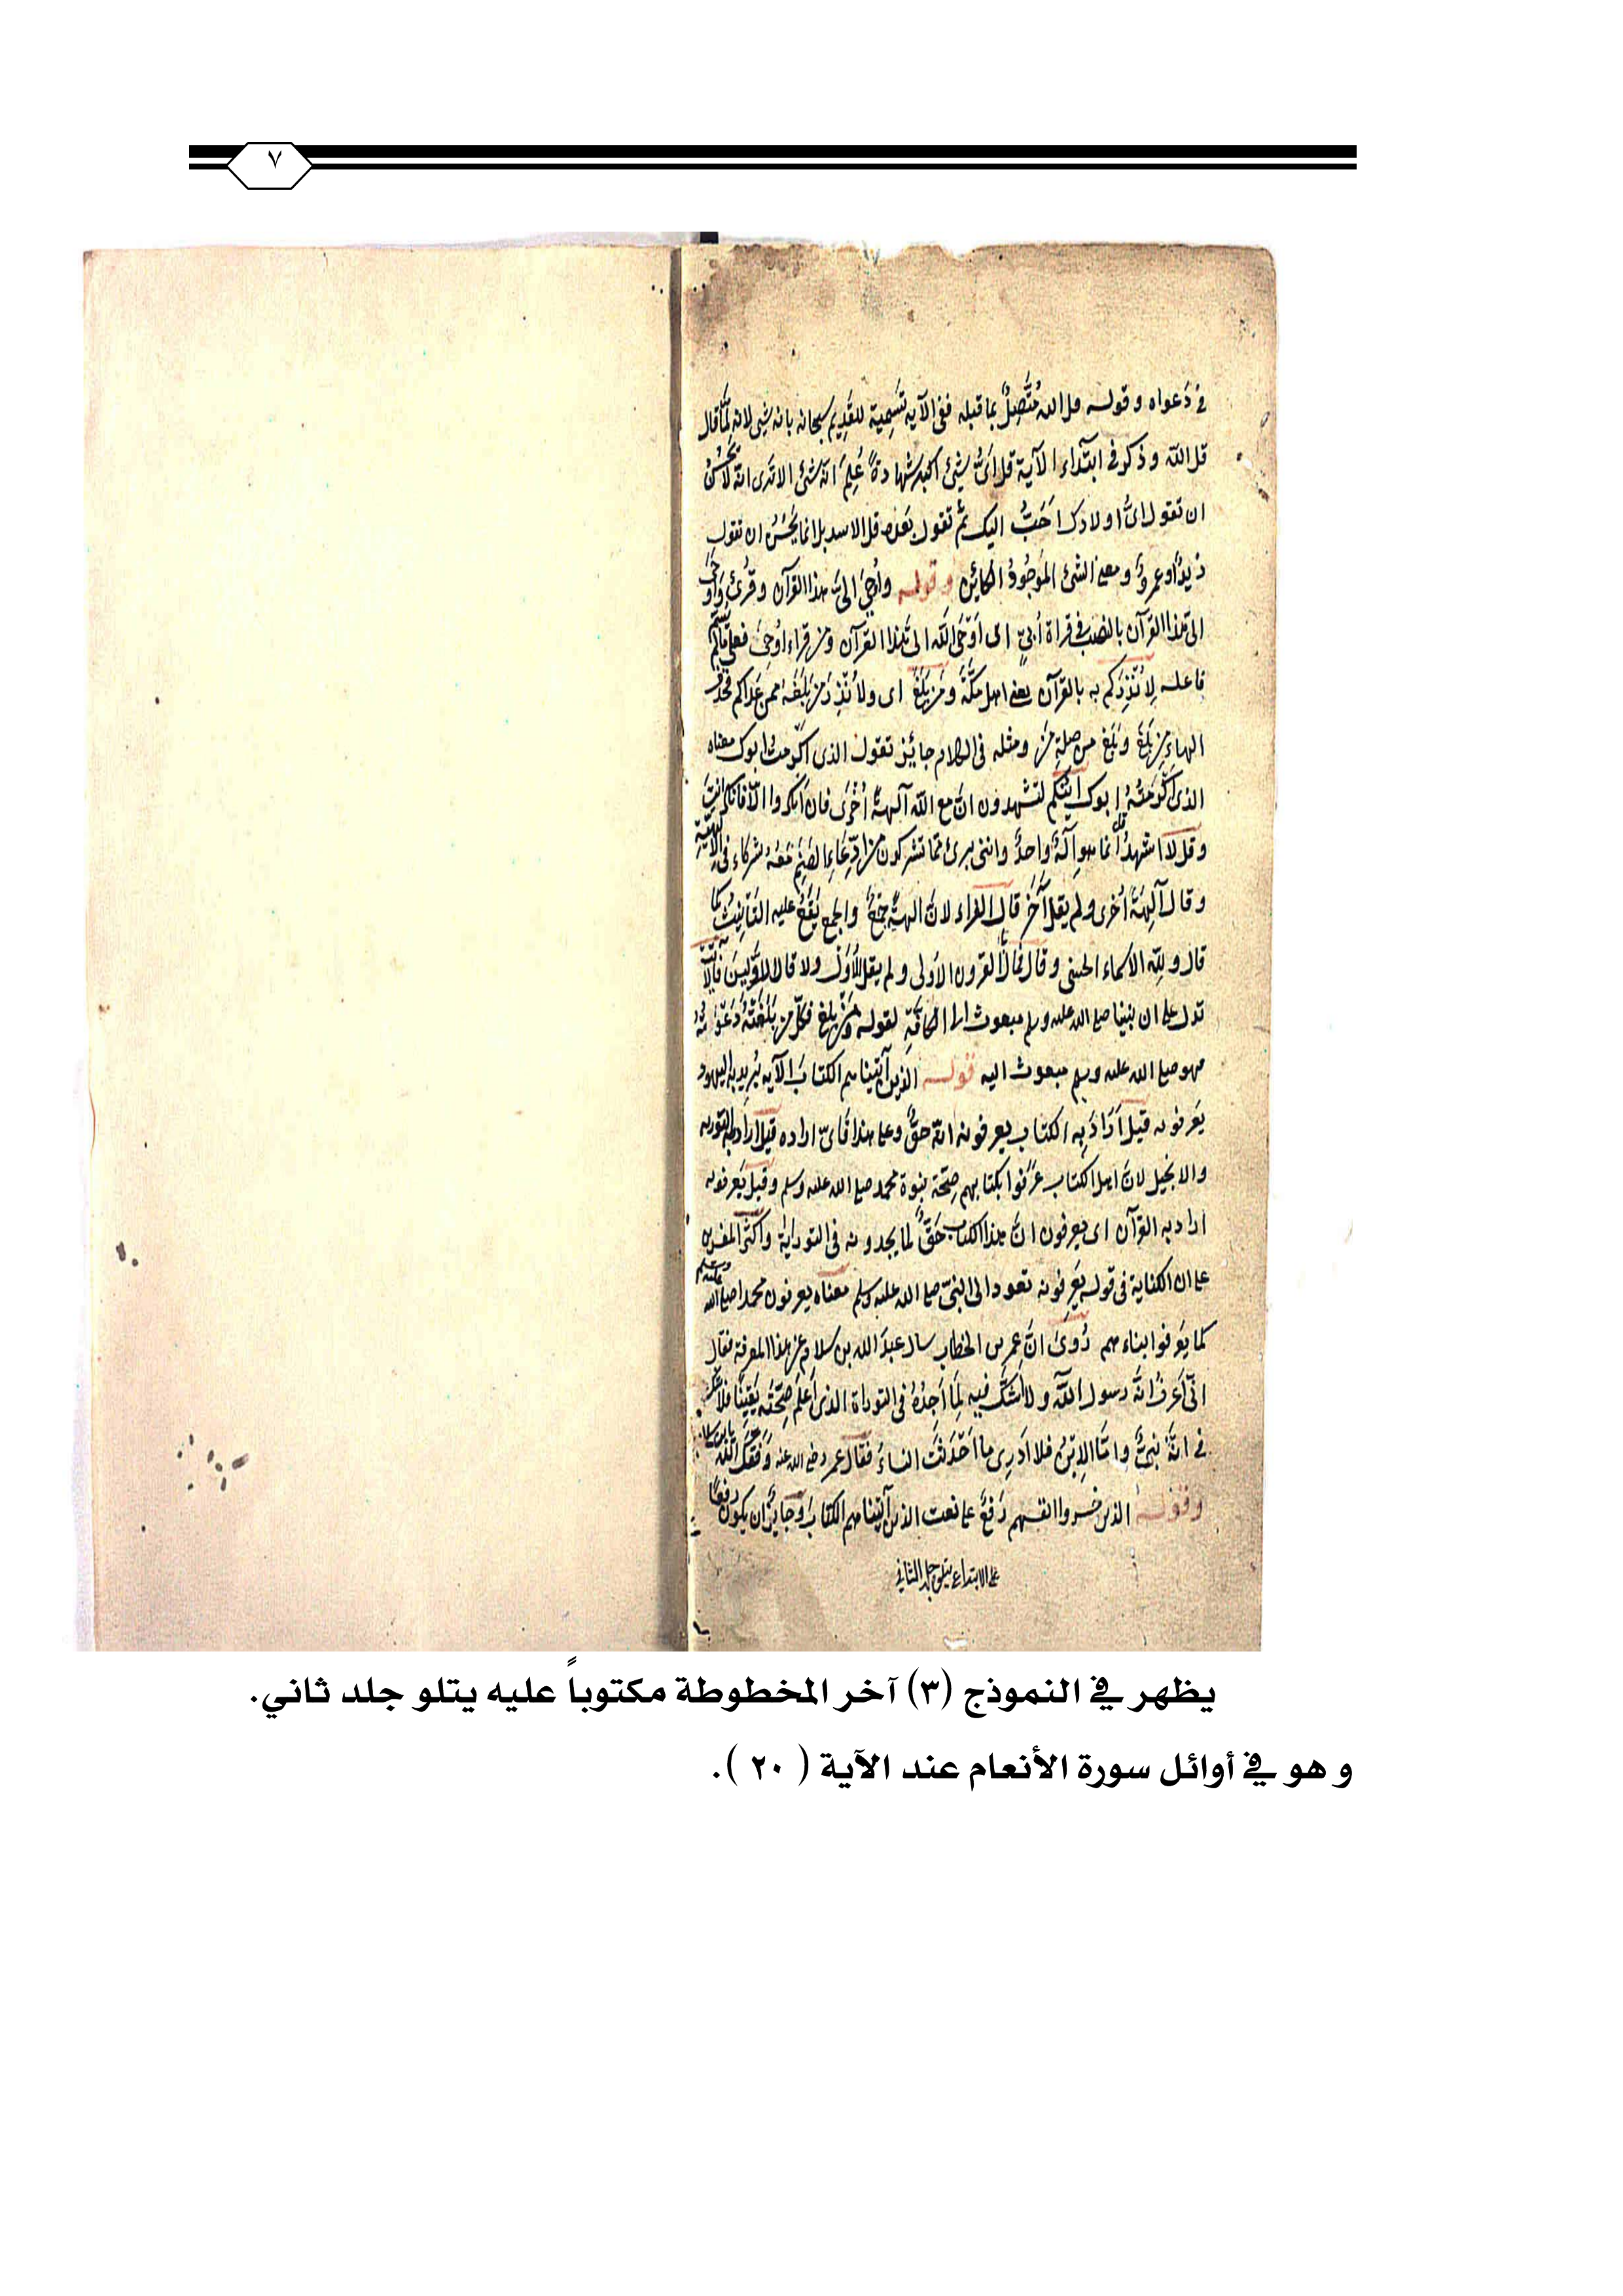 ٧
في دَعواه وقوله قل الله مُتَّصِلٌ بما قبله ففي الآية تَسمِية للقَدِيم سبحانه بانه شئ لانه لمّا قال
قل الله وذكر في ابتداء الآية قل اىُّ شئ اكبر شهادةً عُلِمَ انه شئ الا ترى انه لا يَحْسُنُ
ان تقول اىُّ اولادك احَبُّ اليك ثم تقول بَعْده قل الاسد بل انما يَحْسُنُ ان تقول
زيدٌ او عمروٌ ومعنى الشئ المَوجُودُ الكائِن وقوله وأوحِيَ الىَّ هذا القرآن وقُرئ وَأوحَى
الىّ هذا القرآن بالنصب في قراة أبيّ اى اَوْحَى الله الىّ هذا القرآن ومن قراء اُوحِىَ فعلى ما لم يُسمّ
فاعله لِأنْذِرَكم به بالقرآن يعنى اهل مكّة ومَن بَلَغَ اى ولأنْذِرَ مَن بَلَغَهُ ممن عَداكم فحذف
الهاء من بَلَغَ وبَلَغ من صِلةِ مَن ومثله في الكلام جايز تقول الذى اكرمتُ ابوك معناه
الذى اكرمتُهُ ابوك أينكم لتشهدون انّ مع الله آلهةً اُخْرَى فان انكروا الا فانكر انت
وقل لا اشهدُ قل انما هو اِلهٌ واحدٌ واننى برئ مما تشركون من ادّعاء الصنم مَعَهُ شركاء في الالهية
وقال آلِهةً اُخرى ولم يقل آخَر قال الفراء لانّ الهةً جَمْعٌ والجمع يَقَعُ عليه التانِيثُ كما
قال ولله الاسماء الحسنى وقال فما بال القرون الاولى ولم يقل الاُوَل ولا قال الاوّلين فالآية
تدل على ان نبينا صلى الله عليه وسلم مبعوث الى الكافّة لقوله ومَنْ بلغ فكلّ من بَلَغَتْهُ دَعْوَتُه
فهو صلى الله عليه وسلم مبعوث اليه قوله الذين آتيناهم الكتابَ الآية يُرِيد به اليهود
يَعرفونه قيل اَرَادَ به الكتاب يعرفونه انه حقٌّ وعلى هذا فاىّ اراده قيل اراد به التورية
والانجيل لانّ اهل الكتاب عَرَفوا بكتابهم صِحّة نبوة محمد صلى الله عليه وسلم وقيل يَعرفونه
اراد به القرآن اى يعرفون انّ هذا الكتاب حَقٌّ لما يجدونه في التوراية واكثر المفسرين
على ان الكناية في قوله يَعرِفونه تعود الى النبيّ صلى الله عليه وسلم معناه يعرفون محمدا صلى الله عليه وسلم
كما يَعرفوا ابناءهم رُوِىَ انّ عمر بن الخطاب سال عبد الله بن سلام عن هذا المعرفة فقال
انّى اَعرفُ انه رسول الله ولا اشكّ فيه لِمَا اَجِدُهُ في التوراة الذى اَعلم صِحّتَه يَقِينًا فلا
في انّه نبيٌّ وامّا الاِبْنُ فلا ادرى ما اَحْدَثَت النساءُ فقال عمر رضي الله عنه وَفّقكَ الله يا ابن سلام
وقوله الذين خسروا انفسهم رَفعٌ على نعت الذين آتيناهم الكتاب وجايزٌ ان يكون رفعًا
على الابتداء يتلو جلد الثاني
يظهر في النموذج (٣) آخر المخطوطة مكتوباً عليه يتلو جلد ثاني.
و هو في أوائل سورة الأنعام عند الآية ( ٢٠ ).